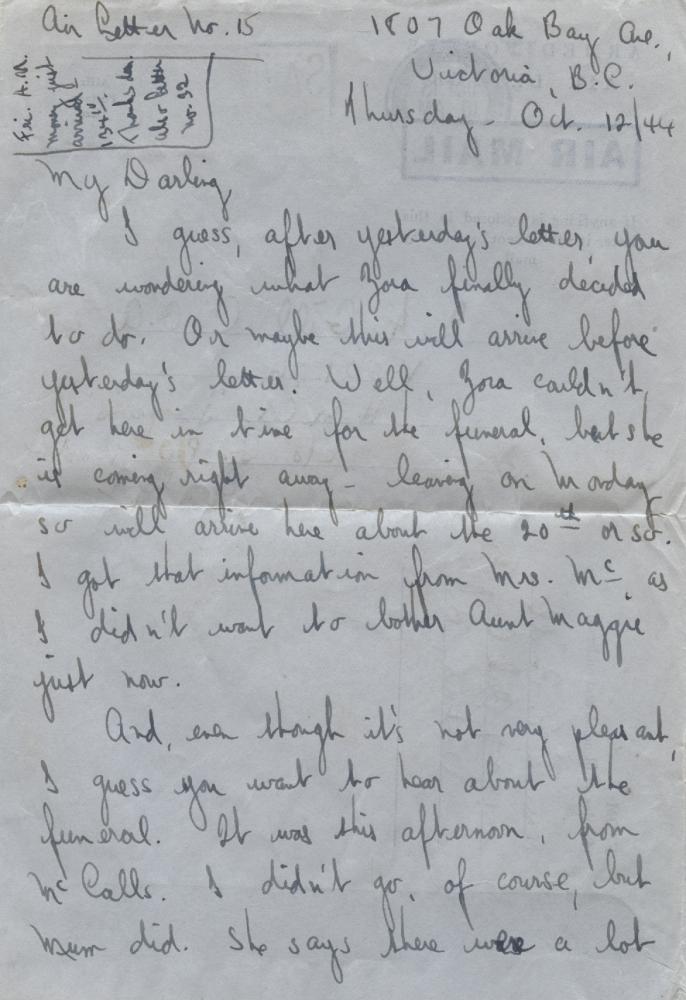 Air Letter No. 15
1807 Oak Bay Ave.,
Victoria, B.C.
Thursday - Oct. 12/44
Fri. A.M.
money just
arrived
Thanks dear.
also letter
no. 92
My Darling
I guess, after yesterday's letter, you
are wondering what Zora finally decided
to do. Or maybe this will arrive before
yesterday's letter. Well, Zora couldn't
get here in time for the funeral, but she
is coming right away - leaving on Monday
so will arrive here about the 20th or so.
I got that information from Mrs. Mc as
I didn't want to bother Aunt Maggie
just now.
And, even though it's not very pleasant,
I guess you want to hear about the
funeral. It was this afternoon, from
McCalls. I didn't go, of course, but
Mum did. She says there were a lot
AIR MAIL